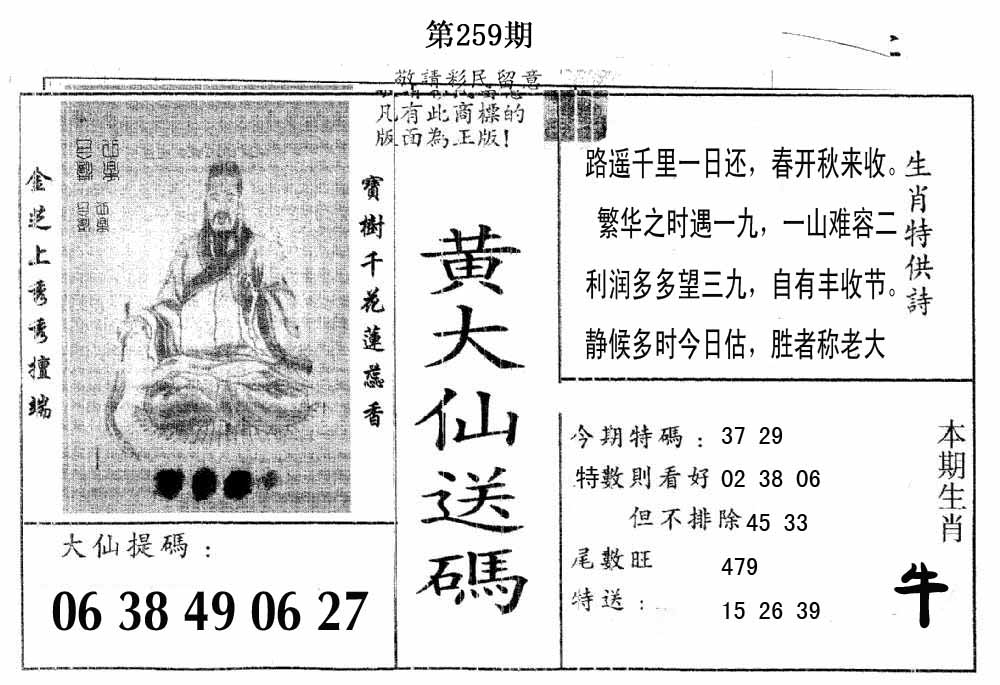 第259期
敬請彩民留意
凡有此商標的
版面為正版!
金芝上秀秀擅端
寶樹千花蓮蕊香
黃大仙送碼
大仙提碼：
06 38 49 06 27
生肖特供詩
路遥千里一日还，春开秋来收。
繁华之时遇一九，一山难容二
利润多多望三九，自有丰收节。
静候多时今日估，胜者称老大
今期特碼：37 29
特數則看好 02 38 06
但不排除 45 33
尾數旺 479
特送：15 26 39
本期生肖
牛